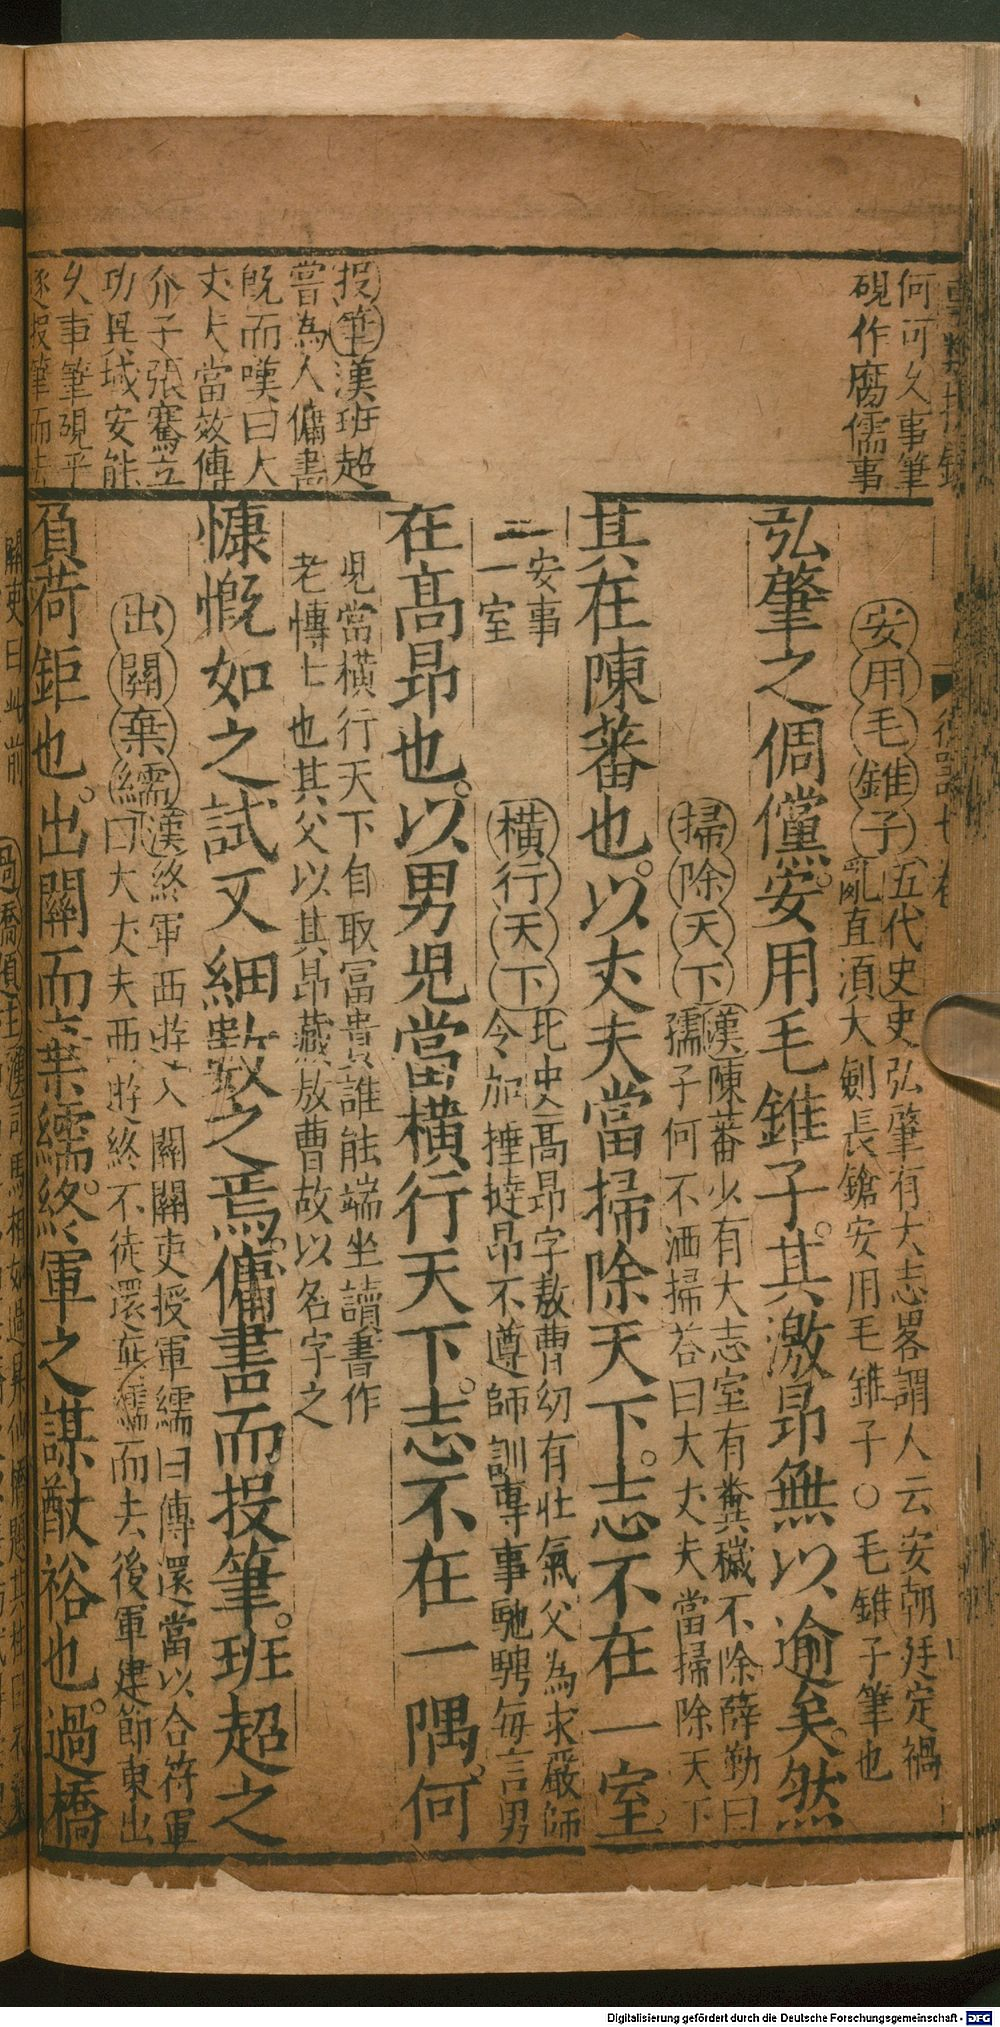 何可久事筆
硯作腐儒事
安用毛錐子
五代史史弘肇有大志畧謂人云安朝廷定禍
亂直湏大劍長鎗安用毛錐子○毛錐子筆也
弘肇之倜儻。安用毛錐子。其激昂無以逾矣。然
掃除天下
漢陳蕃少有大志室有糞穢不除薛勤曰
孺子何不洒掃荅曰大丈夫當掃除天下
其在陳蕃也。以丈夫當掃除天下。志不在一室。
安事
一室
橫行天下
北史高昂字敖曹幼有壯氣父為求嚴師
今加捶撻昂不遵師訓專事馳騁每言男
在高昂也。以男児當橫行天下。志不在一隅。何
児當橫行天下自取冨貴誰能端坐讀書作
老博士也其父以其昂藏敖曹故以名字之
投筆漢班超
甞為人傭書
旣而嘆曰大
丈夫當效傅
介子張騫立
功異域安能
久事筆硯乎
遂投筆而去
慷慨如之試又細數之焉。傭書而投筆。班超之
出關棄繻
漢終軍西遊入關關吏授軍繻曰傳還當以合符軍
曰大丈夫西遊終不徒還棄繻而去後軍建節東出
負荷鉅也。出關而棄繻。終軍之謀猷裕也。過橋
關吏曰此前
Digitalisierung gefördert durch die Deutsche Forschungsgemeinschaft - DFG